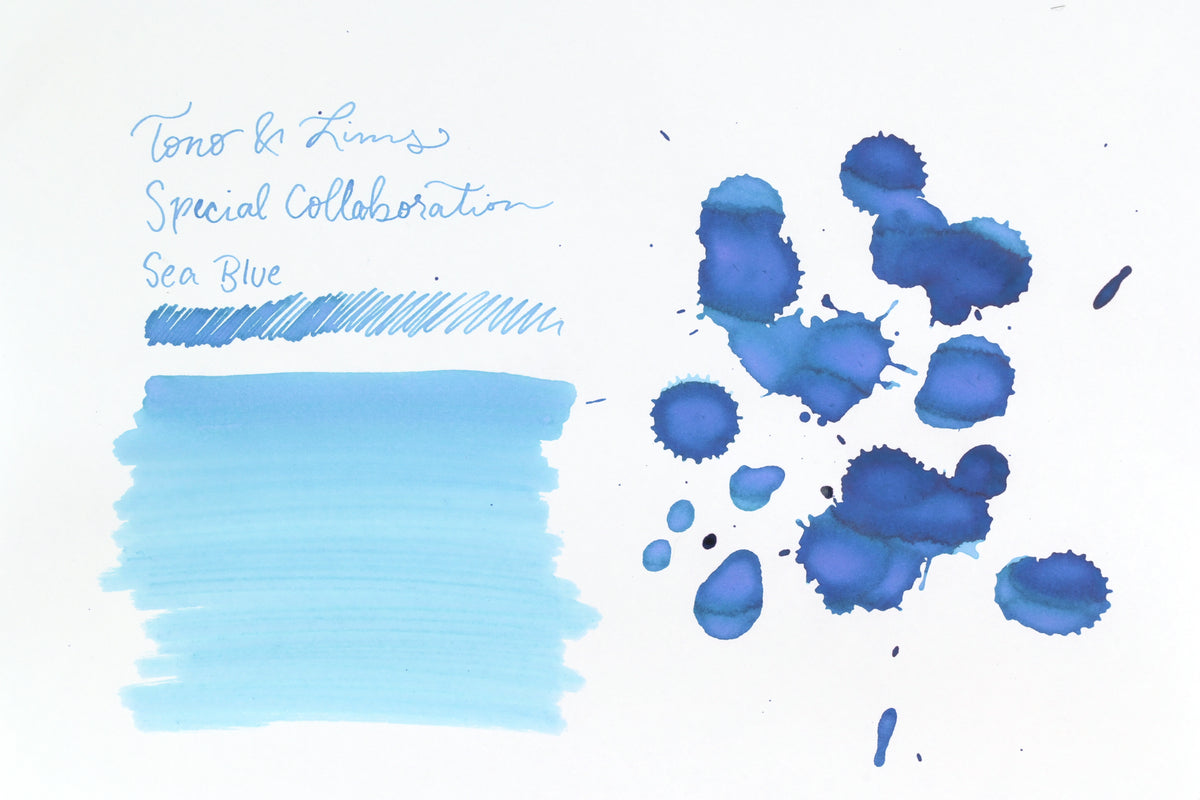 Tono & Lims
Special Collaboration
Sea Blue